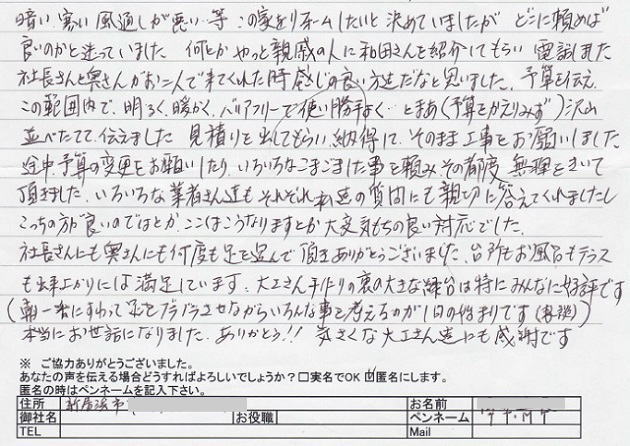 暗い 寒い 風通しが悪い…等 この家をリホームしたいと決めていましたが どこに頼めば
良いのかと迷っていました 何とか やっと親戚の人に和田さんを紹介してもらい 電話しました
社長さんと奥さんがお二人で来てくれた時 感じの良い方達だなと思いました。予算を伝え
この範囲内で、明るく、暖かく、バリアフリーで使い勝手よく…とまあ(予算をかえりみず)沢山
並べたてて、伝えました 見積りを出してもらい、納得して、そのまま工事をお願いしました
途中、予算の変更をお願いしたり、いろいろなこまごました事を頼み その都度 無理をきいて
頂きました、いろいろな業者さん達も それぞれ、私達の質問にも親切に答えてくれましたし
こっちの方が良いのではとか、ここはこうなりますとか 大変気もちの良い対応でした。
社長さんにも奥さんにも何度も足を運んで頂き ありがとうございました、台所もお風呂もテラス
も出来上がりには満足しています、大工さん手作りの裏の大きな縁台は特にみんなに好評です
(朝一番にすわって足をブラブラさせながらいろんな事を考えるのが1日の始まりです())
本当にお世話になりました。ありがとう!! 気さくな大工さん達にも感謝です
※ ご協力ありがとうございました。
あなたの声を伝える場合どうすればよろしいでしょうか?□実名でOK ☑匿名にします。
匿名の時はペンネームを記入下さい。
住所 新居浜市 お名前
御社名 お役職 ペンネーム
TEL Mail